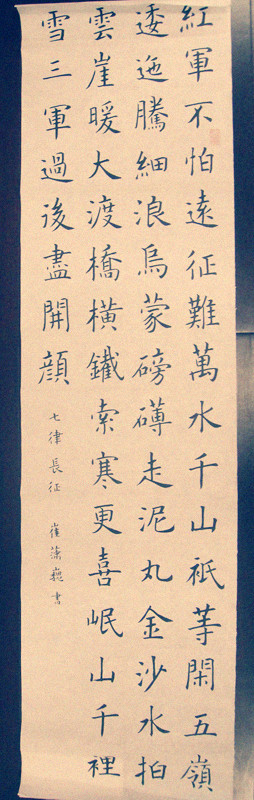 紅軍不怕遠征難萬水千山祇等閑五嶺
逶迤騰細浪烏蒙磅礴走泥丸金沙水拍
雲崖暖大渡橋橫鐵索寒更喜岷山千裡
雪三軍過後盡開顔
七律長征 崔 書